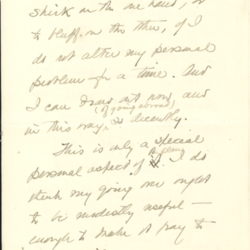 shirk on the one hand, or
to bluff on the other, if I
do not alter my personal
problem for a time. And
I can do so not now, and
(if going abroad)
in this way, so decently.
This is only a special
personal aspect of it. I do
think my going me might
to be modestly useful —
enough to make it pay to